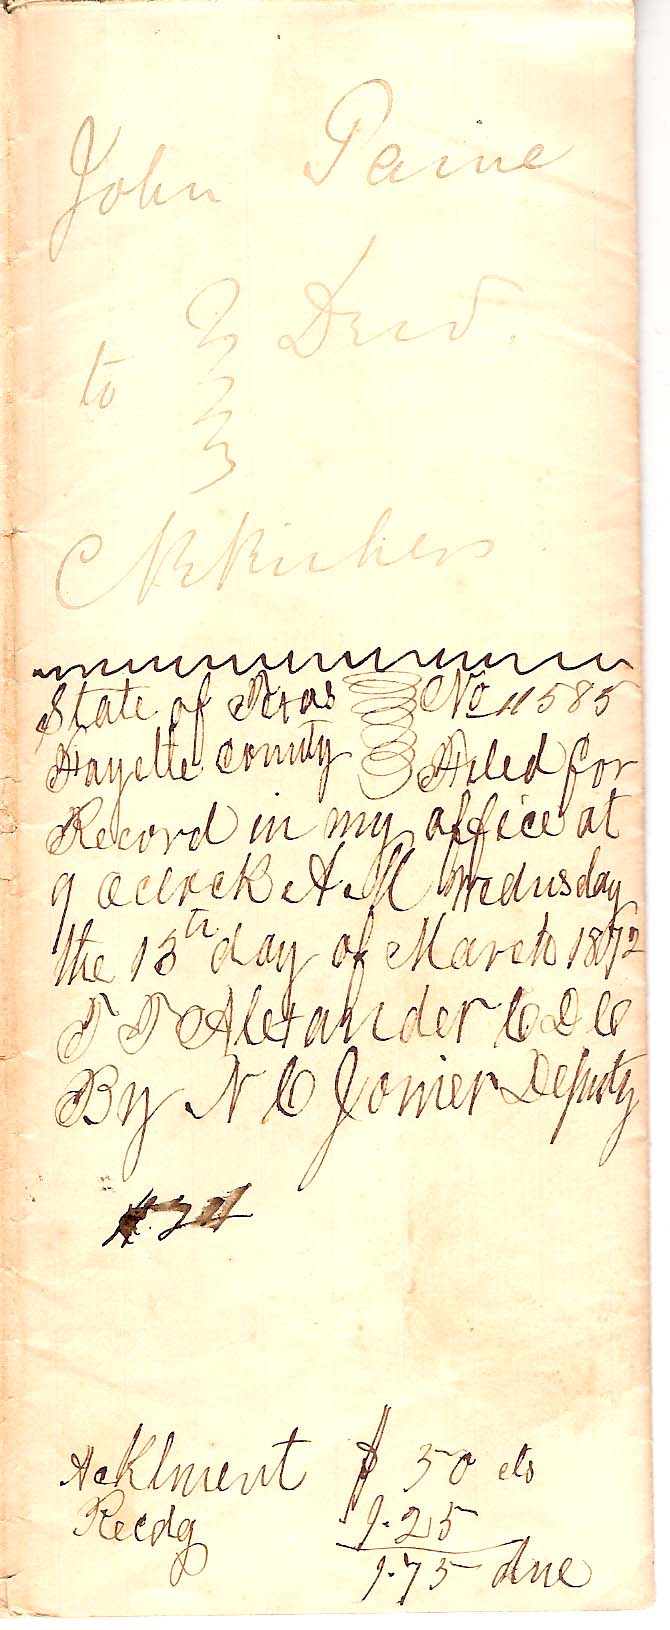 John Paine
to Deed.
State of Texas No 11585
Fayette County Filed for
Record in my office at
9 oclock A.M Wednsday
the 13th day of March 1872
T T Alexander C D C
By N C Joiner Deputy
Acklment $ 50 cts
Recdg 1.25
1.75 due